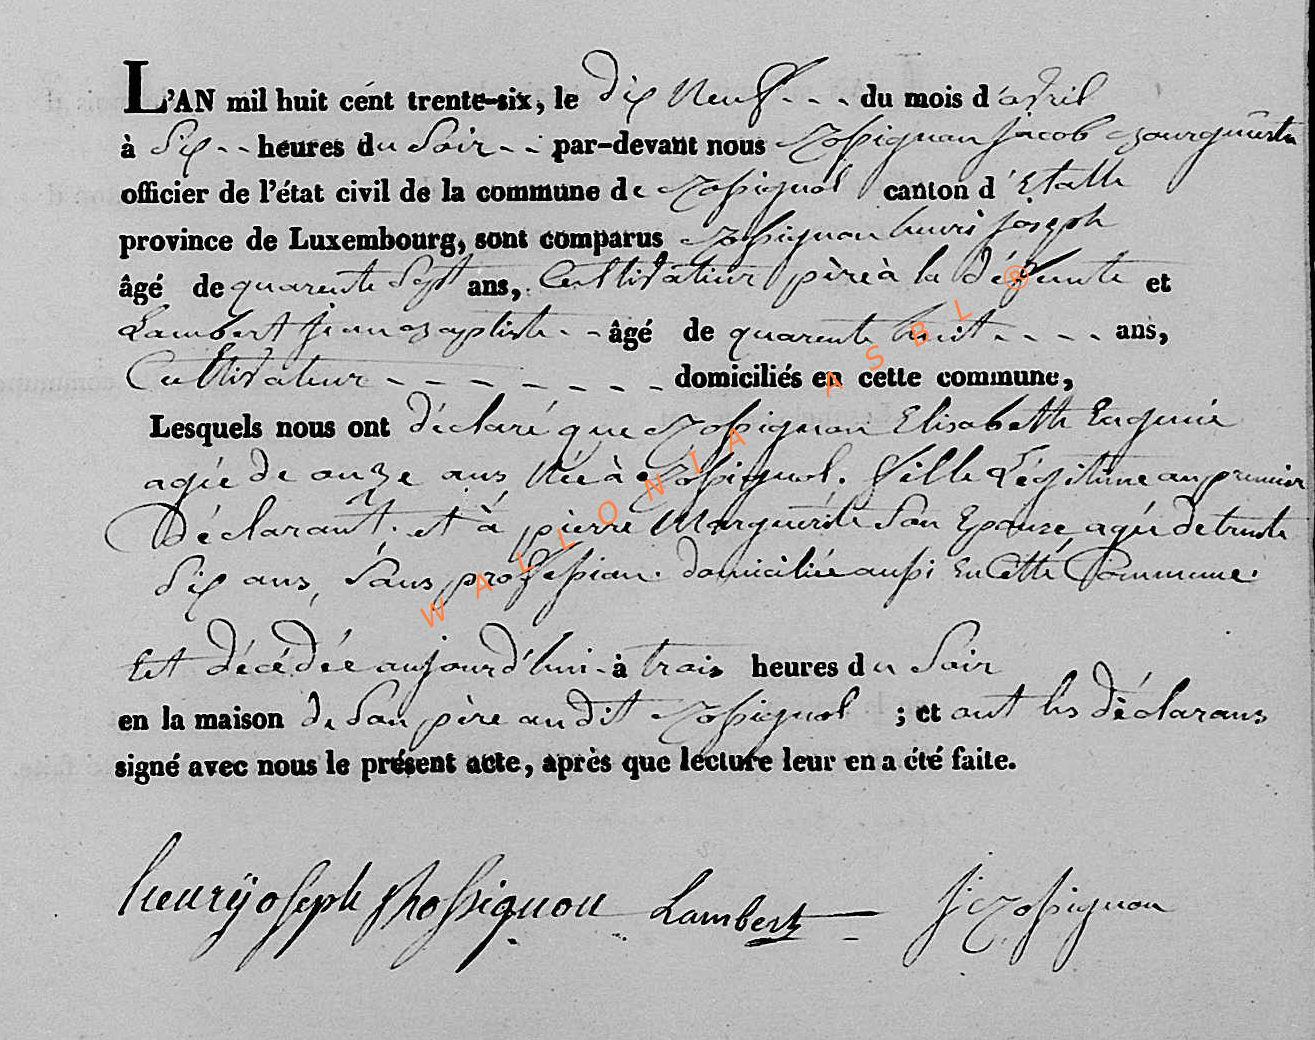 L'AN mil huit cént trente-six, le dix Neuf - - - du mois d'avril
à Six - - heures du Soir - - par-devant nous Rossignon Jacob Bourguemestre
officier de l'état civil de la commune de Rossignol canton d'Etalle
province de Luxembourg, sont comparus Rossignon henri joseph
âgé de quarente Sept ans, Cultivateur père à la défunte et
Lambert jean baptiste - - âgé de quarente huit - - - - ans,
Cultivateur - - - - - - - - domiciliés en cette commune,
Lesquels nous ont déclaré que Rossignon Elisabeth Eugenie
agée de onze ans Née à Rossignol. fille Légitime au premier
Déclarant. et à pierre Marguerite Son Epouze, agée de trente
Six ans, Sans profession. domiciliée aussi En Cette Commune.
Est décédée aujourd'hui - à trois heures du Soir
en la maison de Son père au dit Rossignol ; et ont les déclarans
signé avec nous le présent acte, après que lecture leur en a été faite.
henrÿ joseph Rossignon Lambert J: Rossignon
WALLONIA ASBL ®